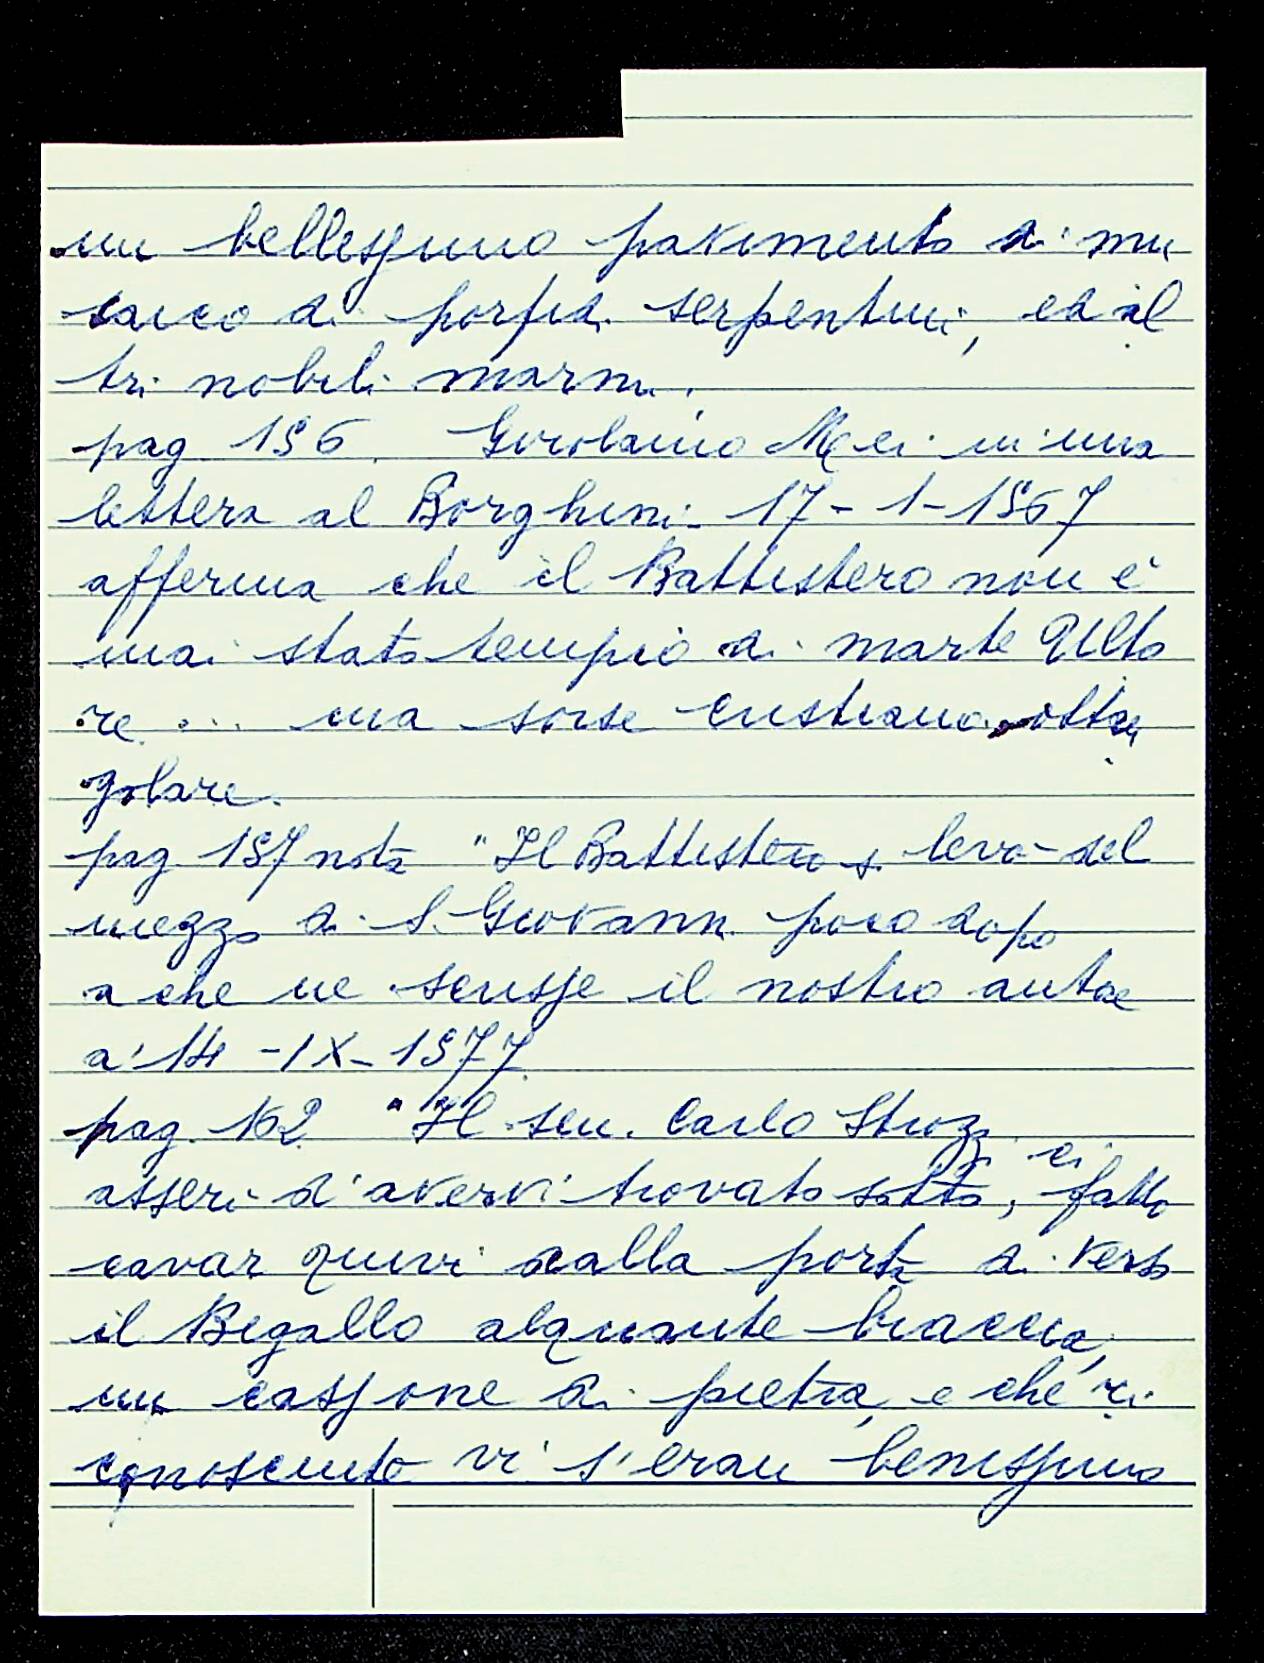 un bellissimo pavimento di mu
saico di porfidi serpentini, ed al
tri nobili marmi.
pag 156. Girolamo Mei in una
lettera al Borghini - 17 - 1 - 1567
afferma che il Battistero non è
mai stato tempio di marte Ulto
re .... ma sorse cristiano ottan
golare.
pag 157 nota "Il Battistero si levò del
mezzo di S. Giovanni poco dopo
a che ne scrisse il nostro autore
a' 14 - IX - 1577
pag. 162 "Il sen. Carlo Strozzi ci
asserì d'avervi trovato sotto, fatto
cavar quivi dalla porta di verso
il Bigallo alquante braccia,
un cassone di pietra, e che ri
conosciuto vi s'eran benissimo